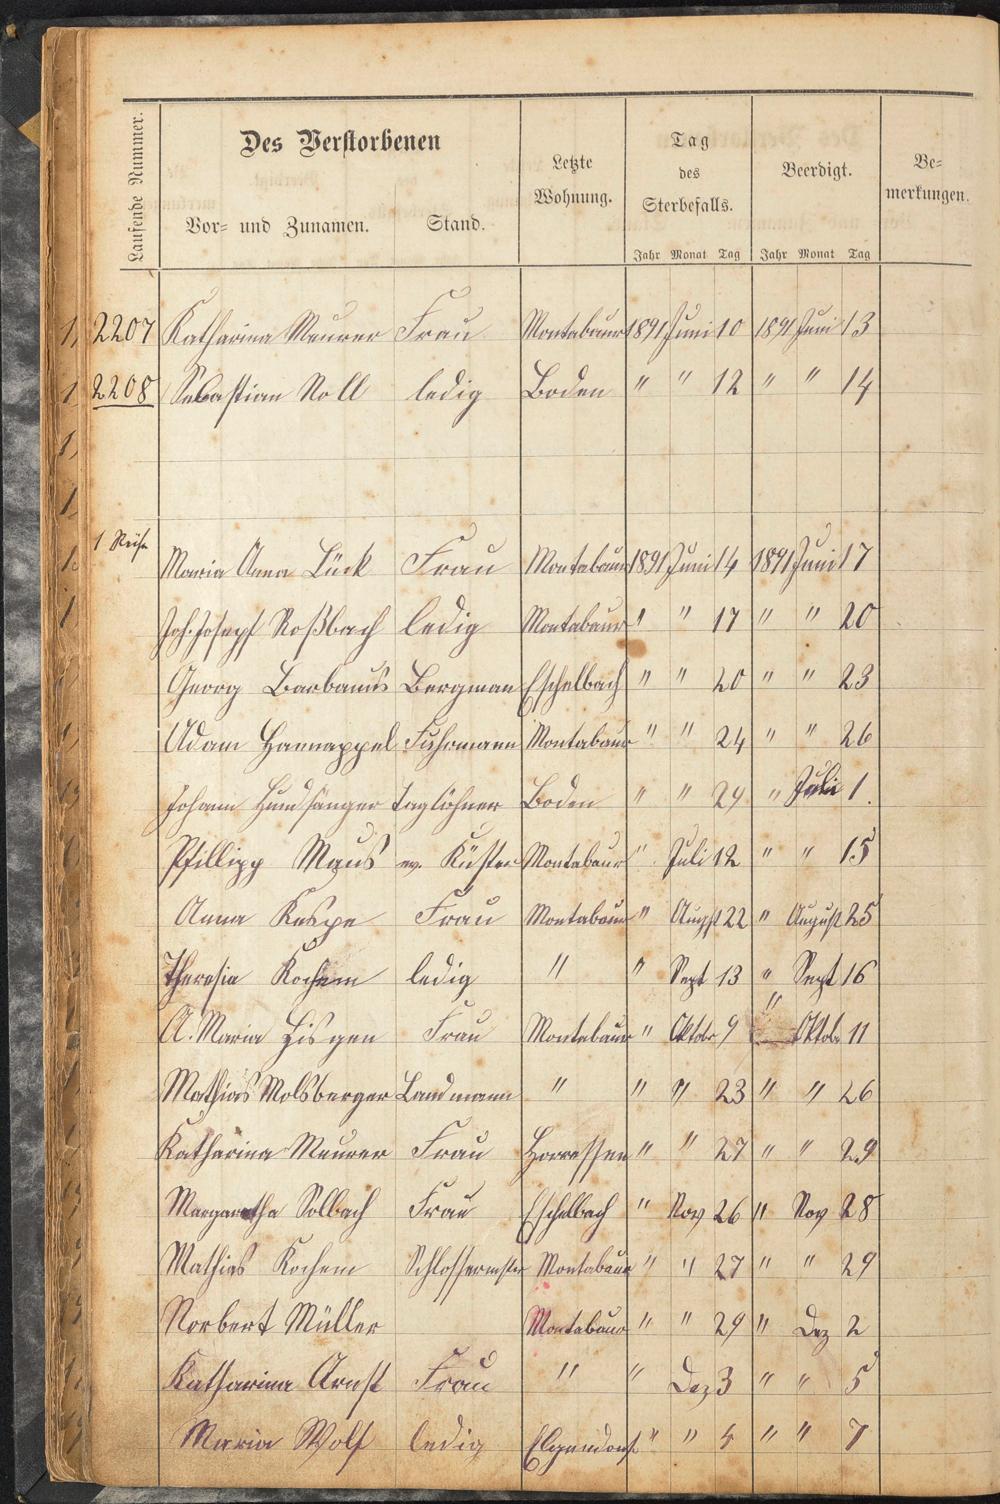 Laufende Nummer.
Des Verstorbenen
Vor- und Zunamen. Stand.
Letzte Wohnung.
Tag des Sterbefalls.
Jahr Monat Tag
Beerdigt.
Jahr Monat Tag
Be-
merkungen.
2207 Katharina Meurer Frau Montabaur 1891 Juni 10 1891 Juni 13
2208 Sebastian Noll ledig Boden " " 12 " " 14
1 Reihe
Maria Anna Lück Frau Montabaur 1891 Juni 14 1891 Juni 17
Joh. Joseph Roßbach ledig Montabaur " " 17 " " 20
Georg Bergman Eschelbach " " 20 " " 23
Adam Hannappel Fuhrmann Montabaur " " 24 " " 26
Johann Hundsänger Taglöhner Boden " " 29 " Juli 1.
Phillipp Maus ev. Küster Montabaur " Juli 12 " " 15
Anna Kespe Frau Montabaur " August 22 " August 25
Theresia Kochem ledig " " Sept 13 " Sept 16
A. Maria Hisgen Frau Montabaur " Oktobr 9 " Oktob 11
Mathias Molsberger Landmann " " " 23 " " 26
Katharina Meurer Frau Horressen " " 27 " " 29
Margaretha Solbach Frau Eschelbach " Nov 26 " Nov 28
Mathias Kochem Schlossermster Montabaur " " 27 " " 29
Norbert Müller Montabaur " " 29 " Dez 2
Katharina Arnst Frau " " Dez 3 " " 5
Maria Wolf ledig Elgendorf " " 5 " " 7